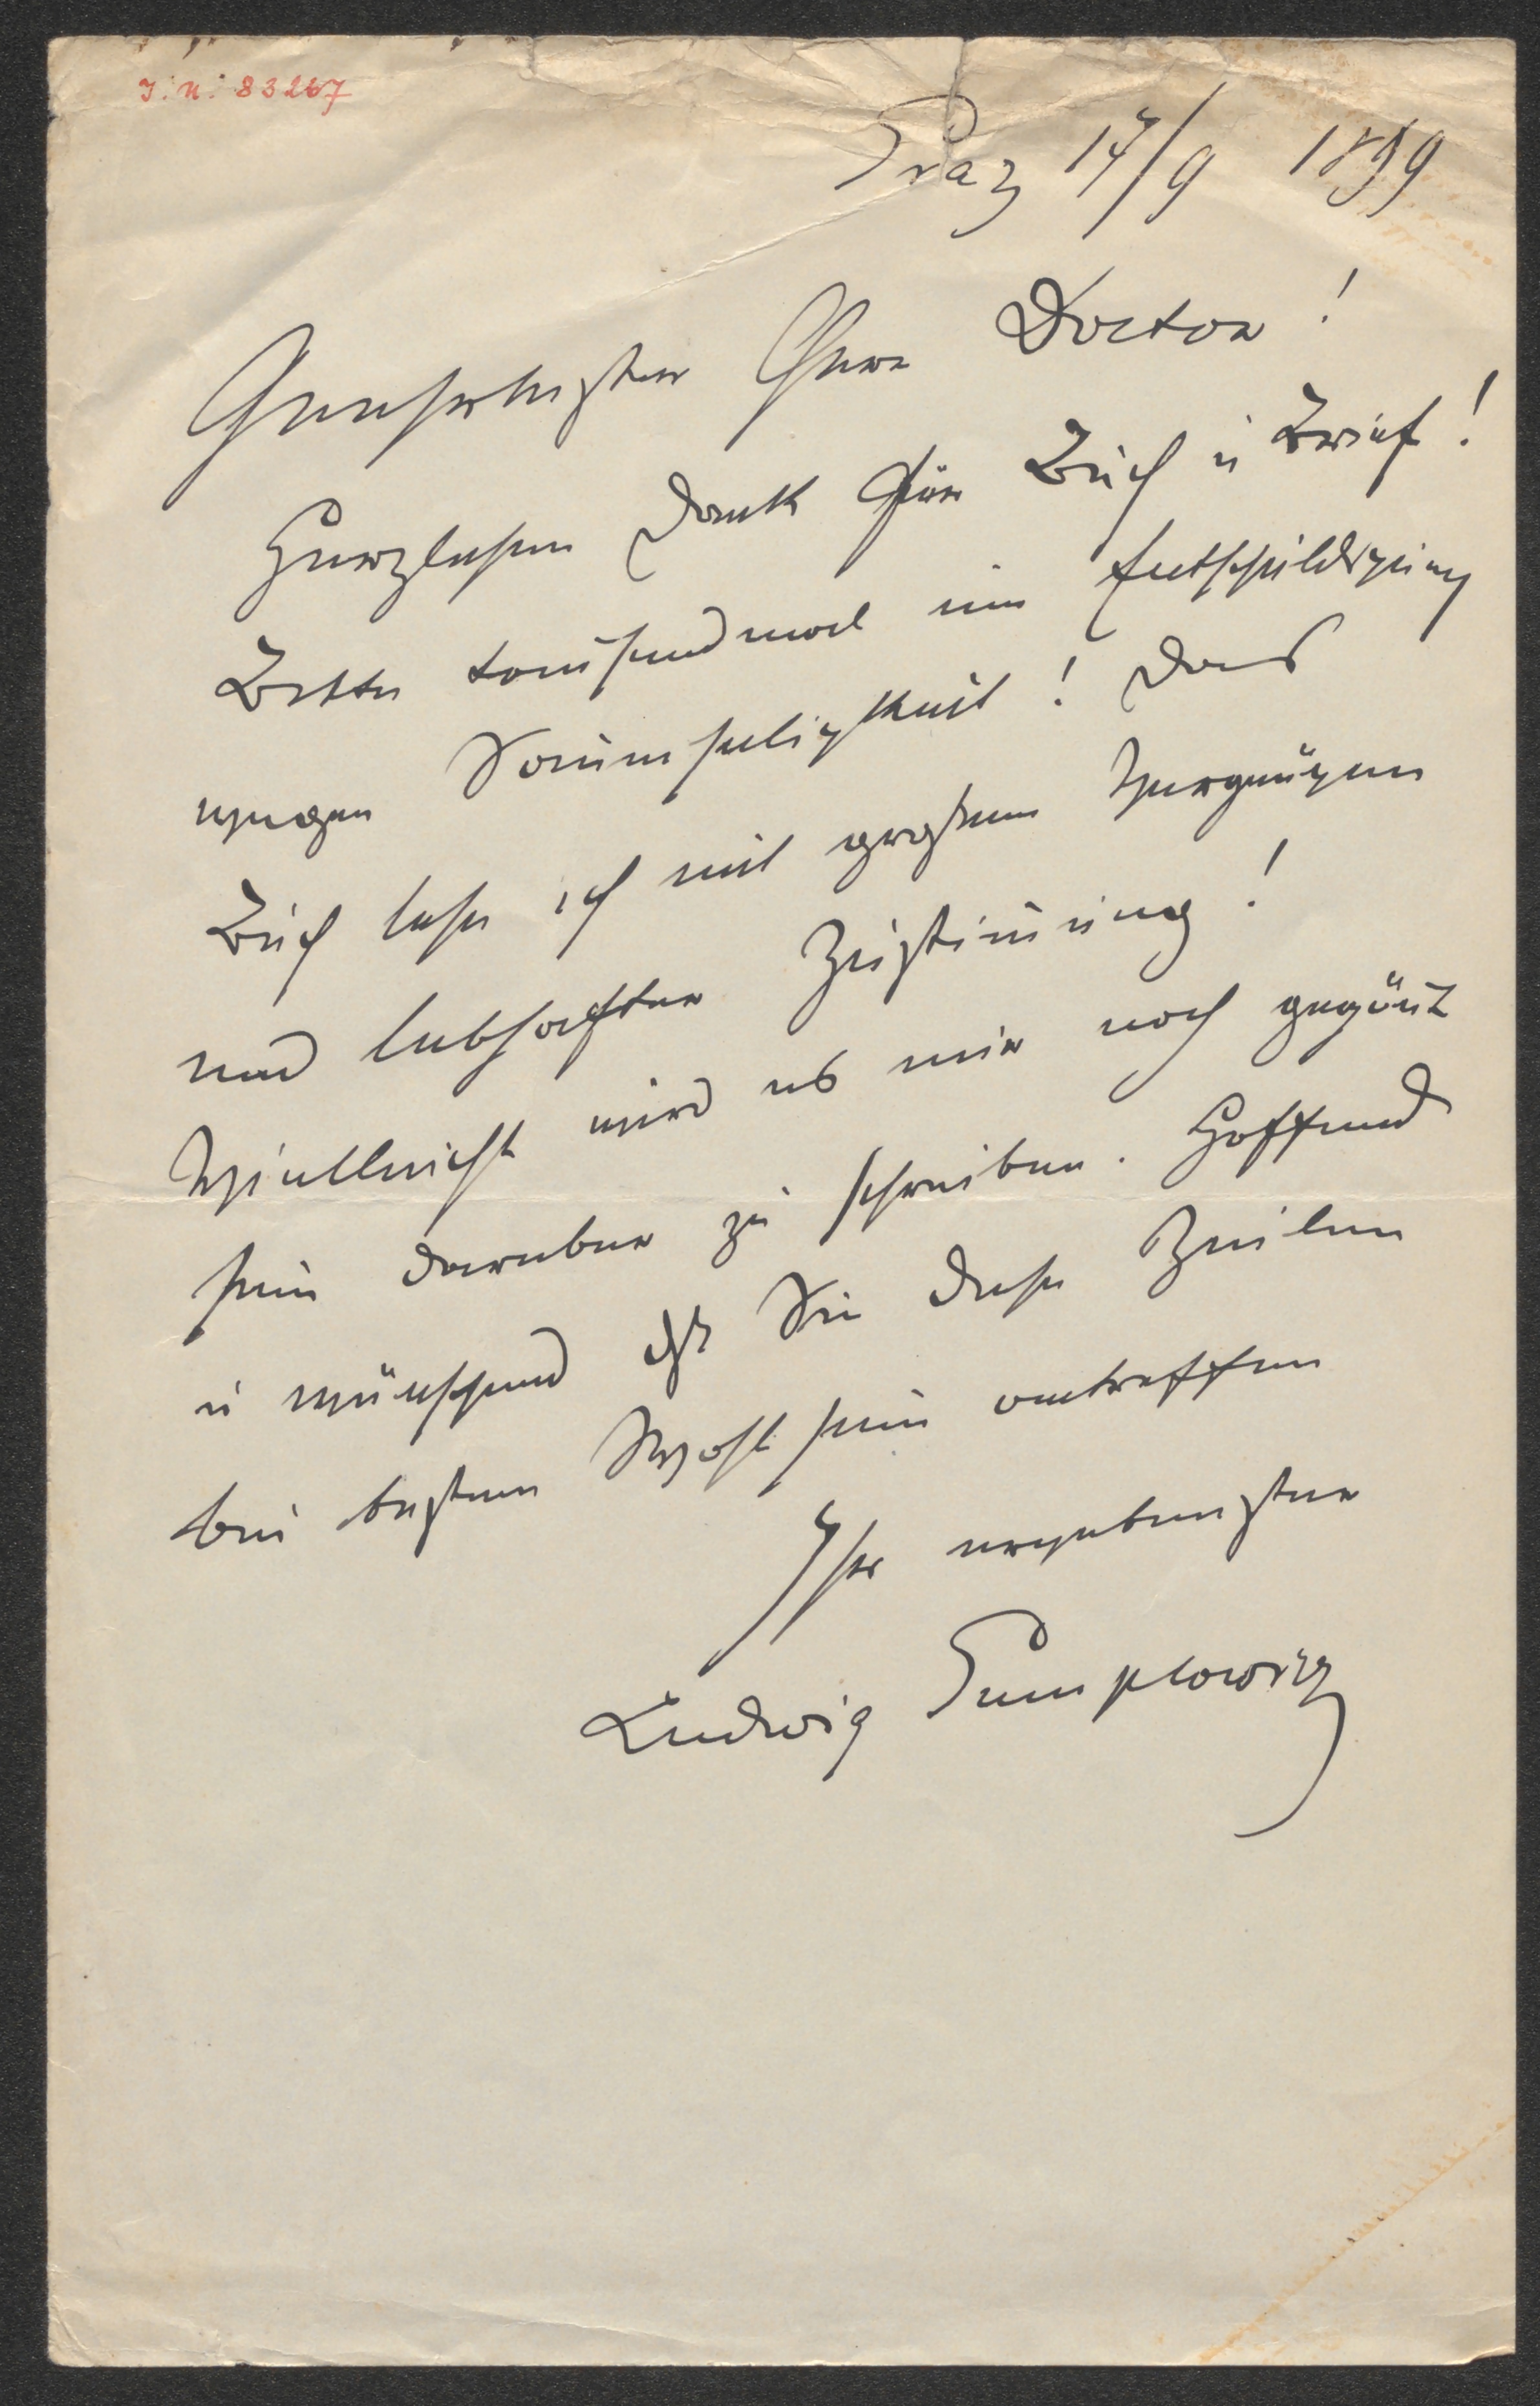 J: N: 83267
Graz 17/9 1899
Geehrtester Herr Doctor!
Herzlichen Dank für Buch u Brief!
Bitte tausendmal um Entschuldigung
wegen Saumseligkeit! Das
Buch lese ich mit großem Vergnügen
und lebhafter Zustimung!
Vielleicht wird es mir noch gegönt
sein darüber zu schreiben. Hoffend
u wünschend daß Sie diese Zeilen
bei bestem Wohlsein antreffen
Ihr ergebenster
Ludwig Gumplowicz